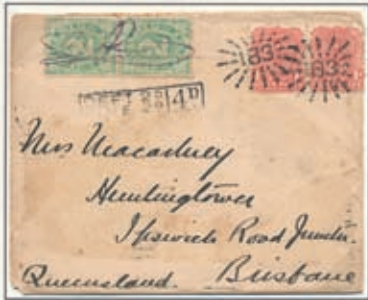 83 83
4D
Mrs Macartney
Huntingtower
Ipswich Road Junctn.
Queensland. Brisbane